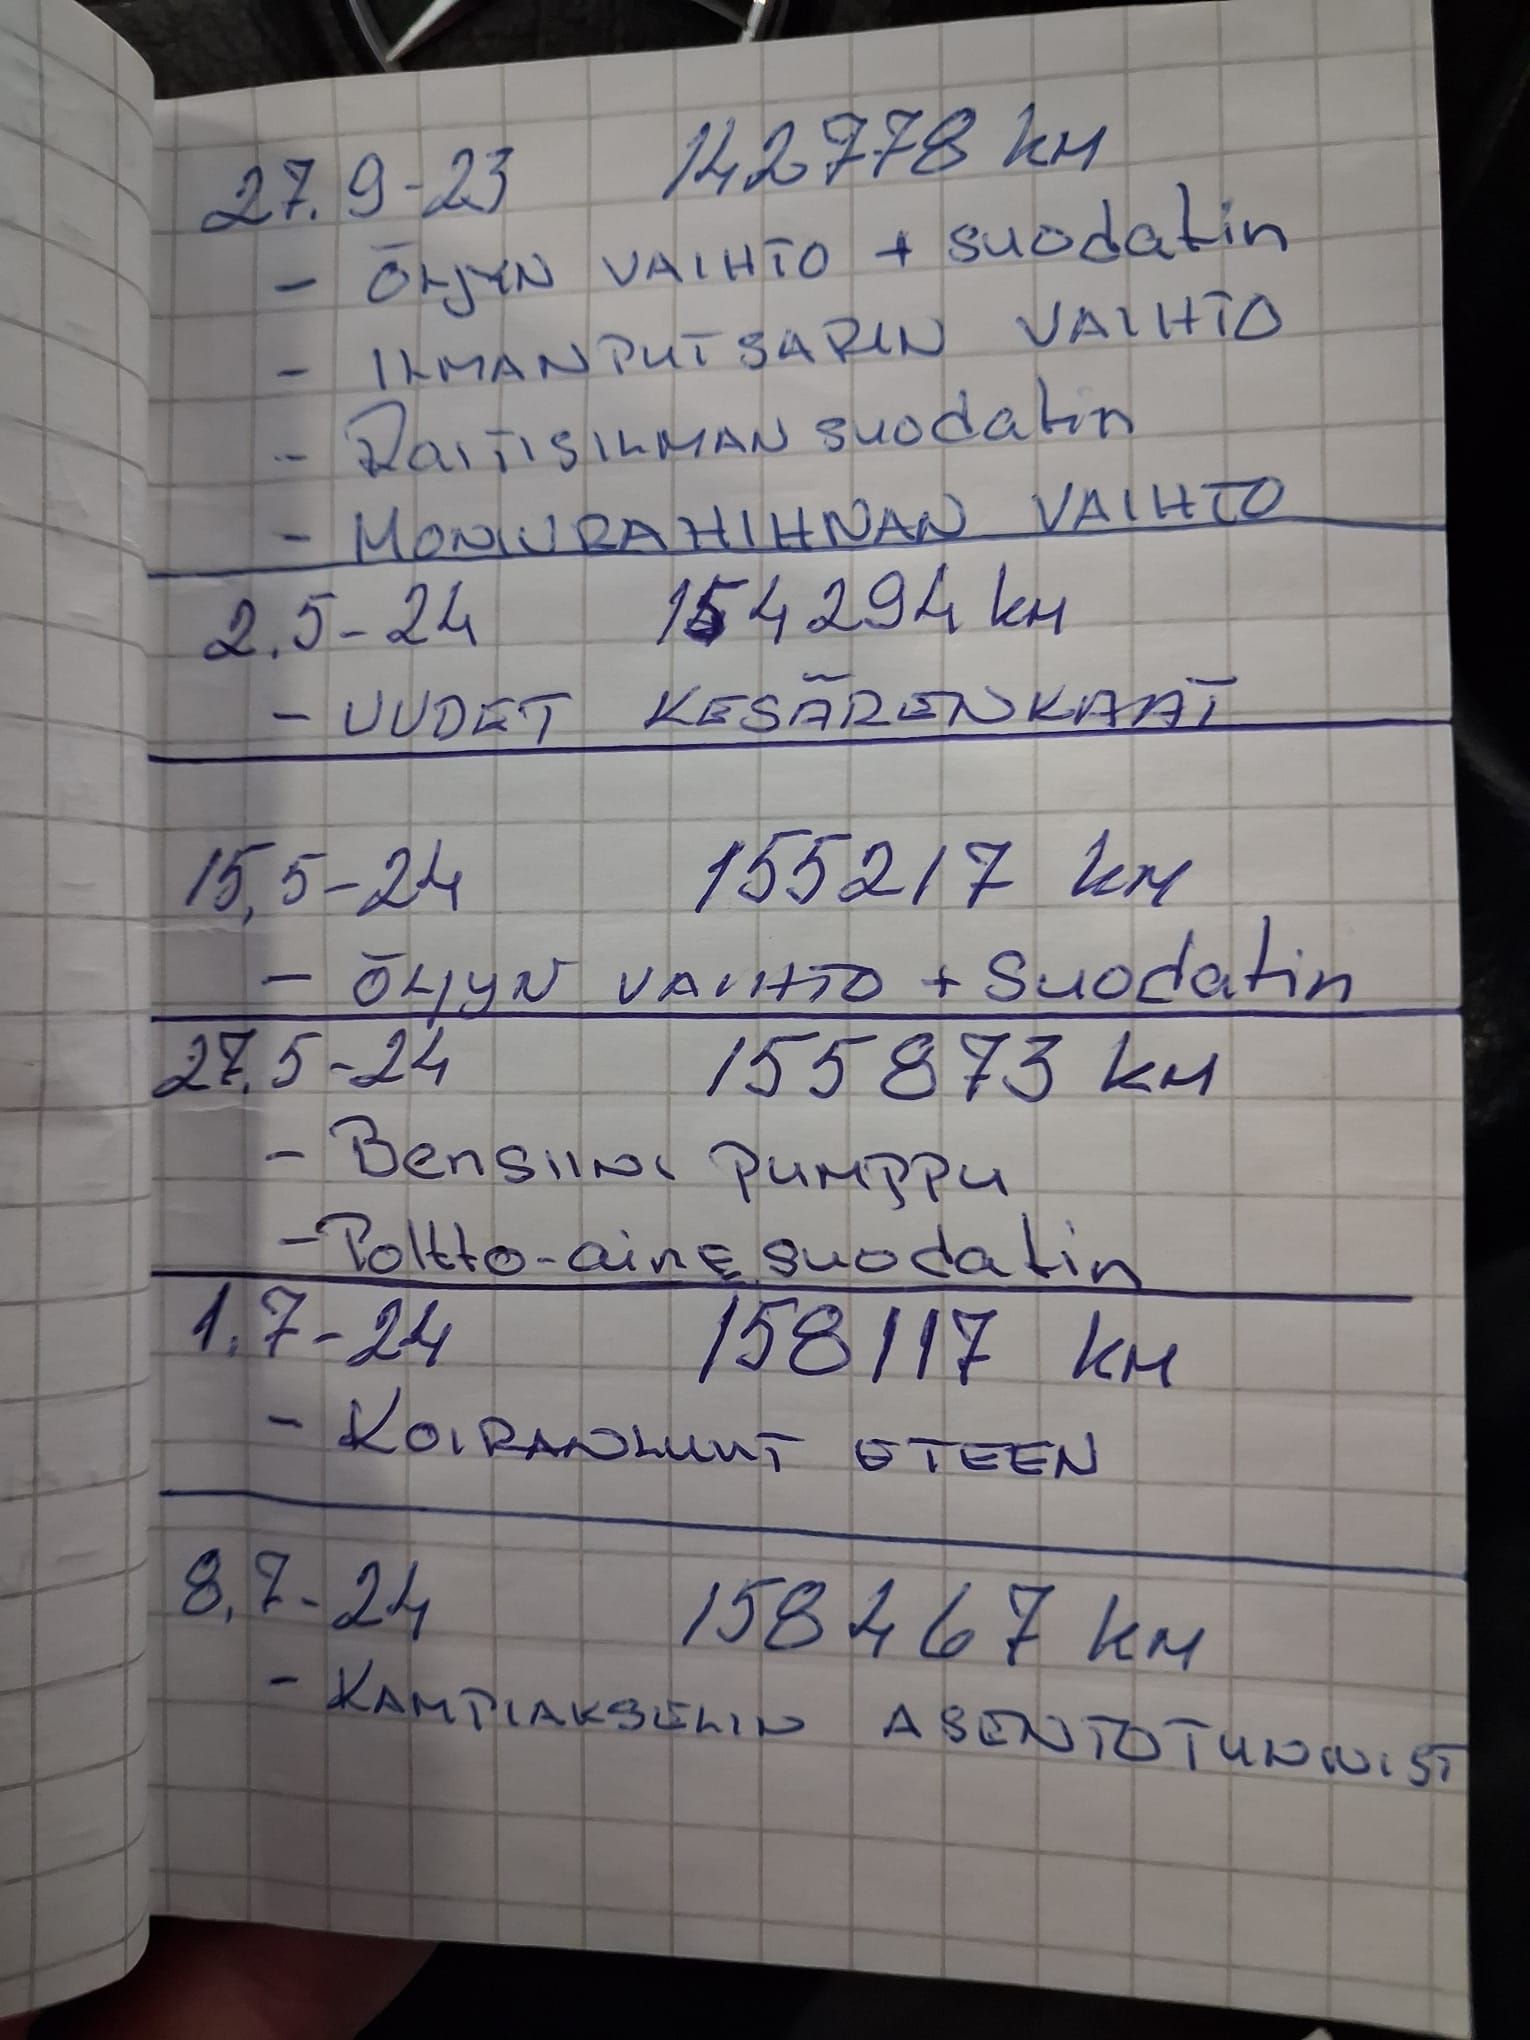 27.9-23 142778 km
- ÖLJYN VAIHTO + suodatin
- ILMANPUTSARIN VAIHTO
- RAITISILMAN suodatin
- MONIURAHIHNAN VAIHTO
2.5-24 154294 km
- UUDET KESÄRENKAAT
15.5-24 155217 km
- ÖLJYN VAIHTO + Suodatin
27.5-24 155873 km
- Bensiini pumppu
- Poltto-aine suodatin
1.7-24 158117 km
- KOIRANLUUT ETEEN
8.7-24 158467 km
- KAMPIAKSELIN ASENTOTUNNIST